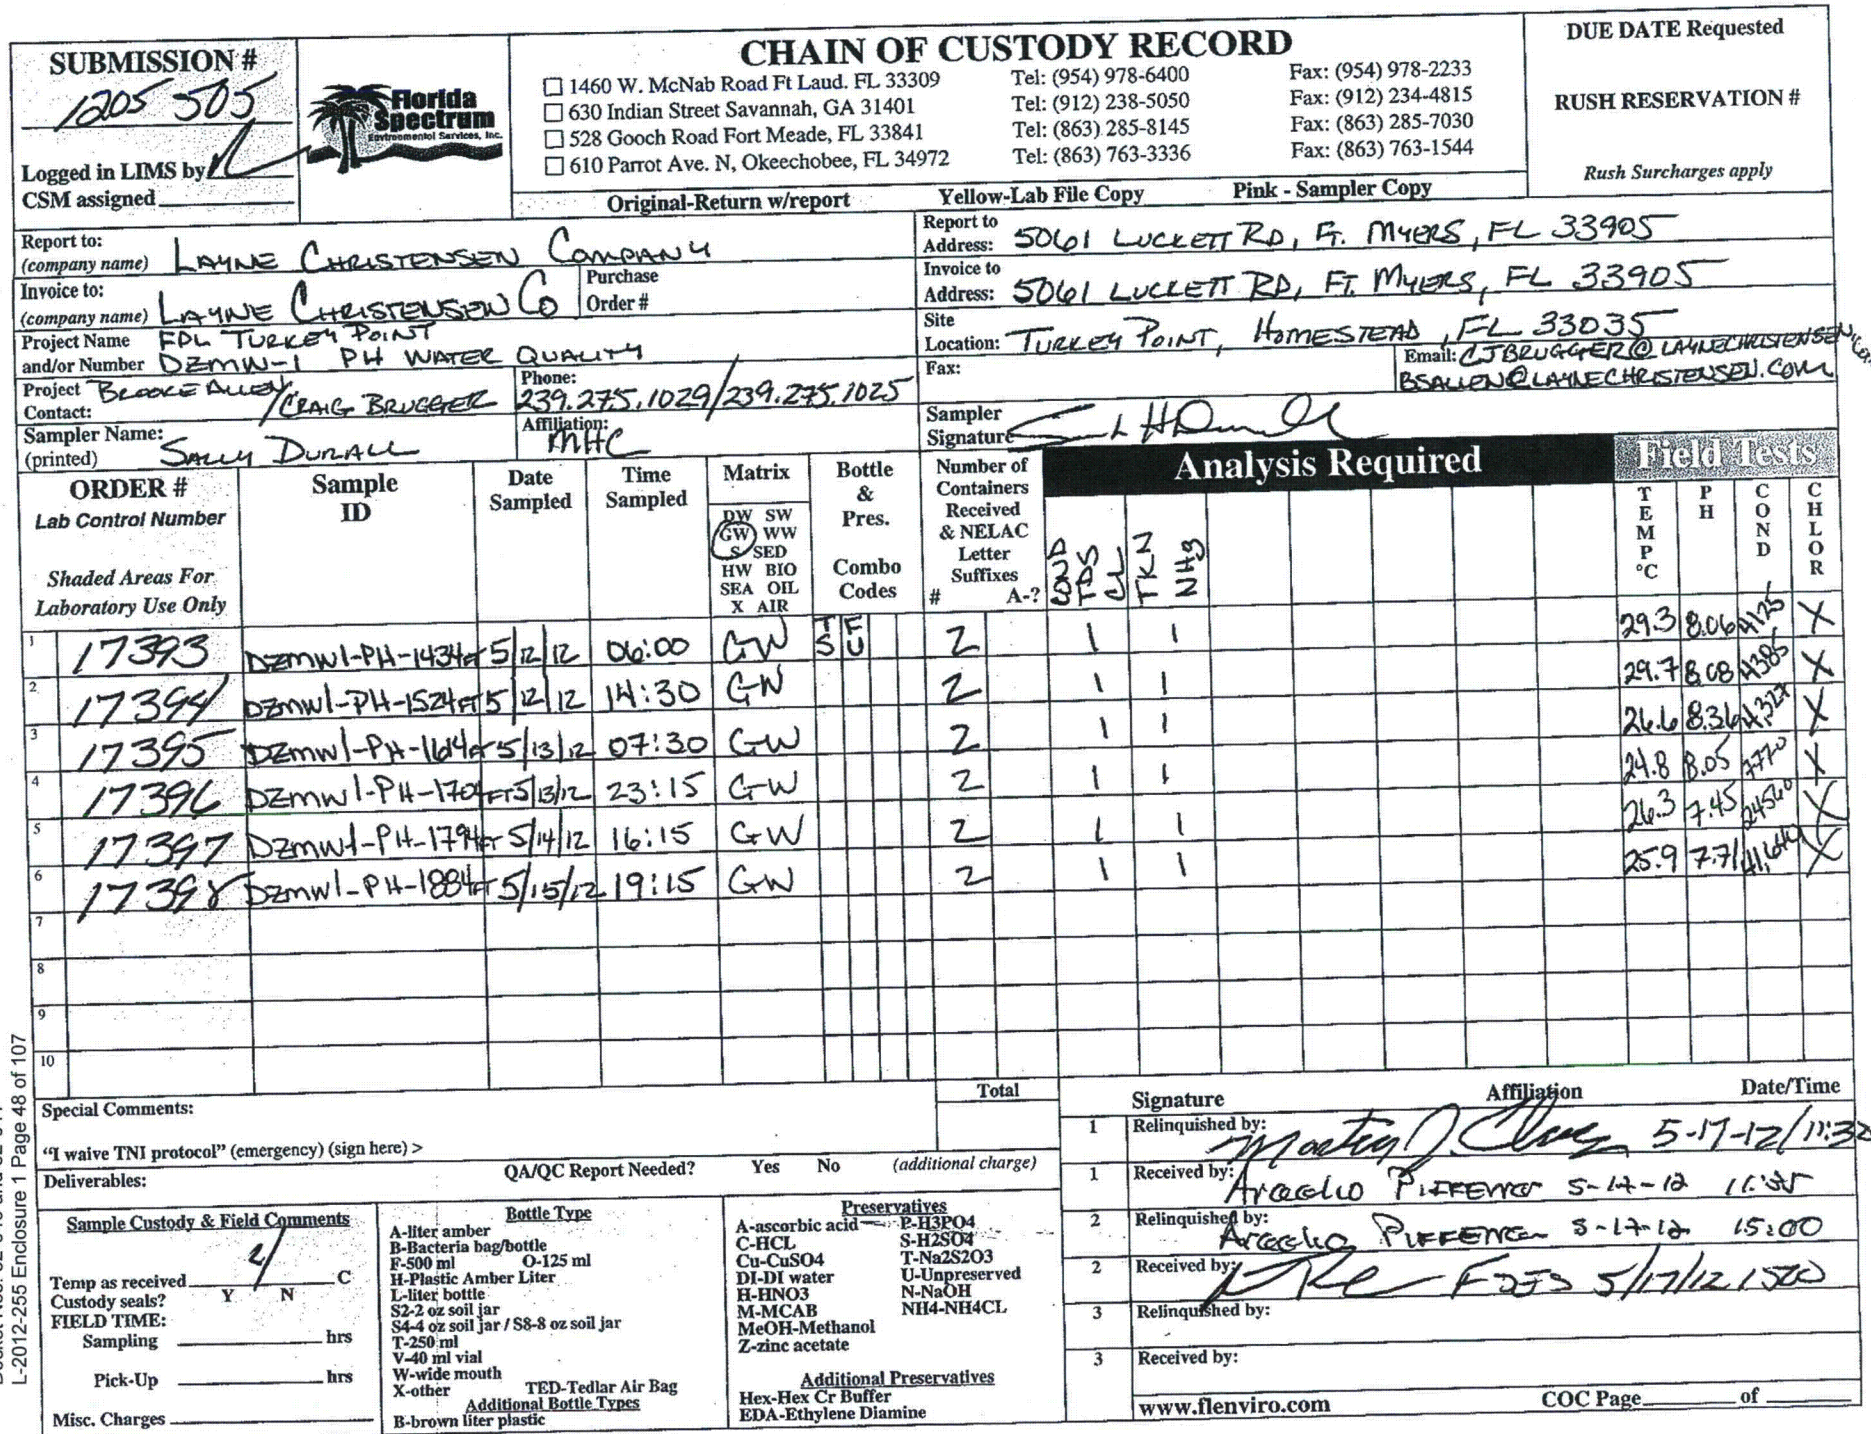 SUBMISSION #
1205 505
Logged in LIMS by
CSM assigned
Florida
Spectrum
Environmental Services, Inc.
CHAIN OF CUSTODY RECORD
☐ 1460 W. McNab Road Ft Laud. FL 33309 Tel: (954) 978-6400 Fax: (954) 978-2233
☐ 630 Indian Street Savannah, GA 31401 Tel: (912) 238-5050 Fax: (912) 234-4815
☐ 528 Gooch Road Fort Meade, FL 33841 Tel: (863) 285-8145 Fax: (863) 285-7030
☐ 610 Parrot Ave. N, Okeechobee, FL 34972 Tel: (863) 763-3336 Fax: (863) 763-1544
Original-Return w/report Yellow-Lab File Copy Pink - Sampler Copy
DUE DATE Requested
RUSH RESERVATION #
Rush Surcharges apply
Report to:
(company name) LAYNE CHRISTENSEN COMPANY
Report to
Address: 5061 LUCKETT RD, FT. MYERS, FL 33905
Invoice to:
(company name) LAYNE CHRISTENSEN CO
Purchase
Order #
Invoice to
Address: 5061 LUCKETT RD, FT. MYERS, FL 33905
Project Name FPL TURKEY POINT
and/or Number DZMW-1 PH WATER QUALITY
Site
Location: TURKEY POINT, HOMESTEAD, FL 33035
Project BROOKE ALLEN
Contact: /CRAIG BRUGGER
Phone:
239.275.1029/239.275.1025
Fax:
Email: CJBRUGGER@LAYNECHRISTENSEN.COM
BSALLEN@LAYNECHRISTENSEN.COM
Sampler Name:
(printed) SALLY DURALL
Affiliation:
MHC
Sampler
Signature
ORDER #
Lab Control Number
Shaded Areas For
Laboratory Use Only
Sample
ID
Date
Sampled
Time
Sampled
Matrix
DW SW
GW WW
S SED
HW BIO
SEA OIL
X AIR
Bottle
&
Pres.
Combo
Codes
Number of
Containers
Received
& NELAC
Letter
Suffixes
# A-?
Analysis Required
COND
TDS
CL
TKN
NH3
Field Tests
TEMP °C
PH
COND
CHLOR
1 17393 DZMW1-PH-1434FT 5/12/12 06:00 GW TS FU 2 1 1 29.3 8.06 4125 X
2 17394 DZMW1-PH-1524FT 5/12/12 14:30 GW 2 1 1 29.7 8.08 4385 X
3 17395 DZMW1-PH-1614FT 5/13/12 07:30 GW 2 1 1 26.6 8.36 4,327 X
4 17396 DZMW1-PH-1704FT 5/13/12 23:15 GW 2 1 1 24.8 8.05 7770 X
5 17397 DZMW1-PH-1794FT 5/14/12 16:15 GW 2 1 1 26.3 7.45 24560 X
6 17398 DZMW1-PH-1884FT 5/15/12 19:15 GW 2 1 1 25.9 7.71 41,640 X
7
8
9
10
Total
Special Comments:
"I waive TNI protocol" (emergency) (sign here) >
Deliverables: QA/QC Report Needed? Yes No (additional charge)
Sample Custody & Field Comments
Temp as received C
Custody seals? Y N
FIELD TIME:
Sampling hrs
Pick-Up hrs
Misc. Charges
Bottle Type
A-liter amber
B-Bacteria bag/bottle
F-500 ml O-125 ml
H-Plastic Amber Liter
L-liter bottle
S2-2 oz soil jar
S4-4 oz soil jar / S8-8 oz soil jar
T-250 ml
V-40 ml vial
W-wide mouth
X-other TED-Tedlar Air Bag
Additional Bottle Types
B-brown liter plastic
Preservatives
A-ascorbic acid P-H3PO4
C-HCL S-H2SO4
Cu-CuSO4 T-Na2S2O3
DI-DI water U-Unpreserved
H-HNO3 N-NaOH
M-MCAB NH4-NH4CL
MeOH-Methanol
Z-zinc acetate
Additional Preservatives
Hex-Hex Cr Buffer
EDA-Ethylene Diamine
Signature Affiliation Date/Time
1 Relinquished by: 5-17-12/11:32
1 Received by: 5-17-12
2 Relinquished by: 5-17-12 15:00
2 Received by: 5/17/12 1500
3 Relinquished by:
3 Received by:
www.flenviro.com COC Page of
L-2012-255 Enclosure 1 Page 48 of 107